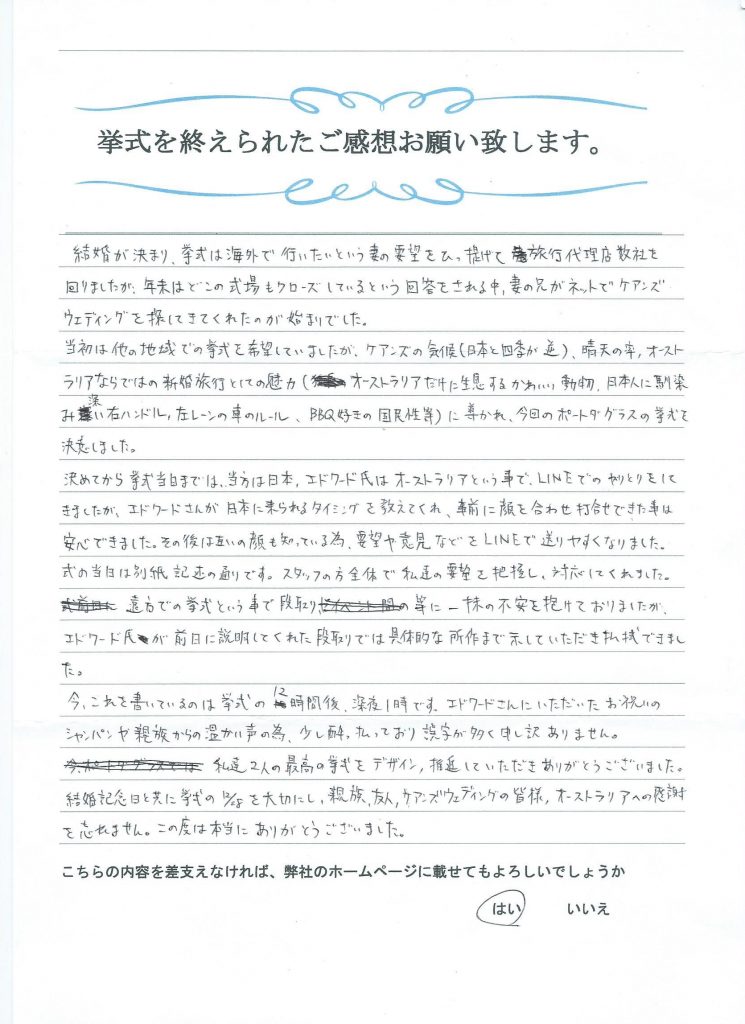 挙式を終えられたご感想お願い致します。
結婚が決まり、挙式は海外で行いたいという妻の要望をひっ提げて旅行代理店数社を
回りましたが、年末はどこの式場もクローズしているという回答をされる中、妻の兄がネットでケアンズ
ウェディングを探してきてくれたのが始まりでした。
当初は他の地域での挙式を希望していましたが、ケアンズの気候(日本と四季が逆)、晴天の率、オースト
ラリアならではの新婚旅行としての魅力(オーストラリアだけに生息するかわいい動物、日本人に馴染
み深い右ハンドル、左レーンの車のルール、BBQ好きの国民性等)に導かれ、今回のポートダグラスの挙式を
決意しました。
決めてから挙式当日までは、当方は日本、エドワード氏はオーストラリアという事で、LINEでのやりとりをして
きましたが、エドワードさんが日本に来られるタイミングを教えてくれ、事前に顔を合わせ打合せできた事は
安心できました。その後は互いの顔も知っている為、要望や意見などをLINEで送りやすくなりました。
式の当日は別紙記述の通りです。スタッフの方全体で私達の要望を把握し、対応してくれました。
遠方での挙式という事で段取り等に一抹の不安を抱けておりましたが、
エドワード氏が前日に説明してくれた段取りでは具体的な所作まで示していただき払拭できまし
た。
今、これを書いているのは挙式の12時間後、深夜1時です。エドワードさんにいただいたお祝いの
シャンパンや親族からの温かい声の為、少し酔っ払っており誤字が多く申し訳ありません。
私達2人の最高の挙式をデザイン、推進していただきありがとうございました。
結婚記念日と共に挙式の12/28を大切にし、親族、友人、ケアンズウェディングの皆様、オーストラリアへの感謝
を忘れません。この度は本当にありがとうございました。
こちらの内容を差支えなければ、弊社のホームページに載せてもよろしいでしょうか
はい いいえ